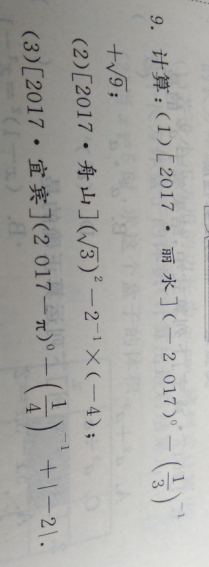 9. 计算:(1)[2017·丽水](-2 017)⁰-(1/3)⁻¹
+√9;
(2)[2017·舟山](√3)²-2⁻¹×(-4);
(3)[2017·宜宾](2 017-π)⁰-(1/4)⁻¹+|-2|.